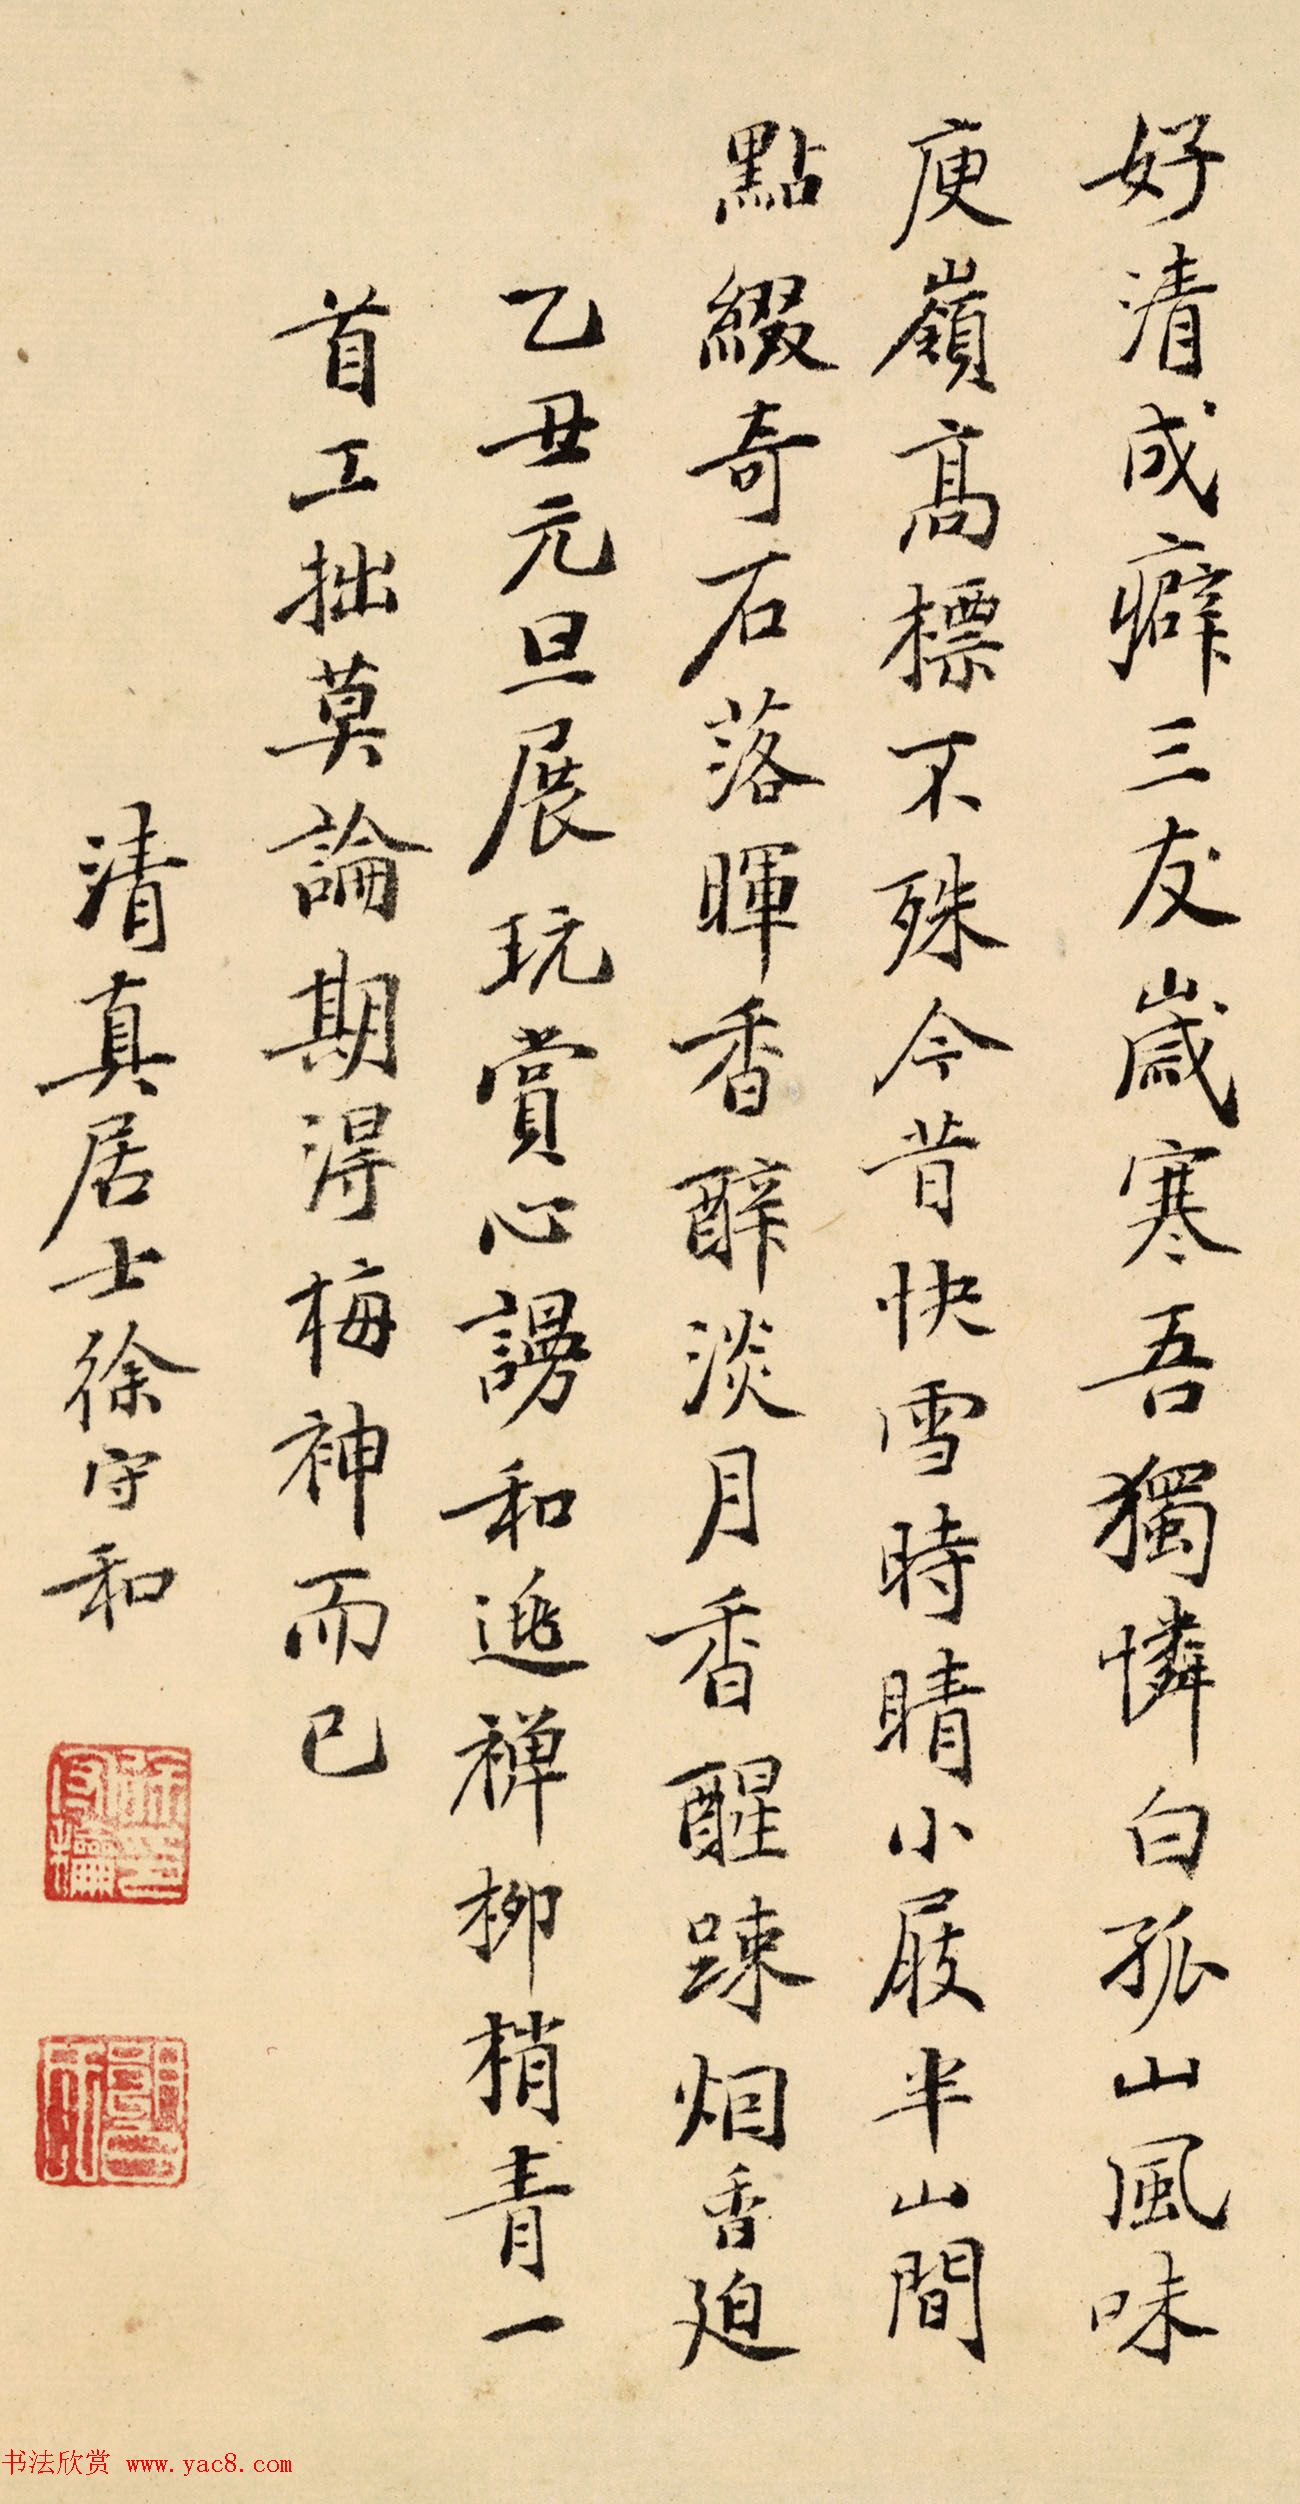 好清成癖三友歲寒吾獨憐白孤山風味
庾嶺高標不殊今昔快雪時晴小屐半山間
點綴奇石落暉香醉淡月香醒踈烟香迫
乙丑元旦展玩賞心謾和逃禅柳梢青一
首工拙莫論期得梅神而已
清真居士徐守和
书法欣赏 www.yac8.com